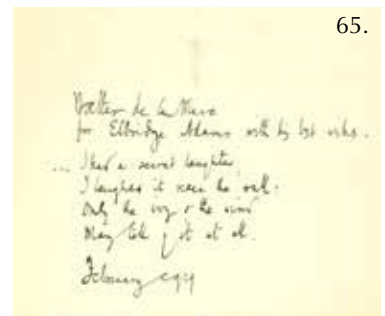 65.
Walter de la Mare
for Elbridge Adams with his best wishes.
... I had a secret laughter,
I laughed it near the wall:
Only the ivy & the wind
May tell of it at all.
February 1929